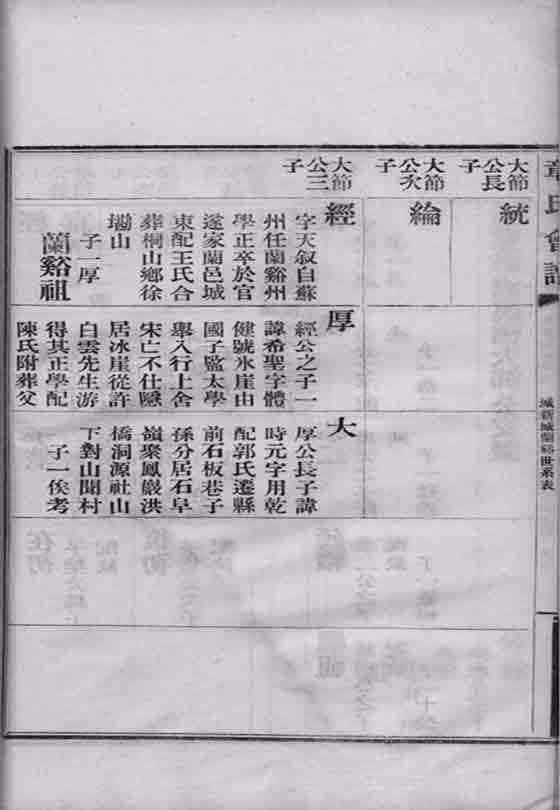 章氏會譜
大節
公長
子
統
大節
公次
子
綸
大節
公三
子
經
字天叙自蘇
州任蘭谿州
學正卒於官
遂家蘭邑城
東配王氏合
葬桐山鄉徐
塲山
子一厚
蘭谿祖
厚
經公之子一
諱希聖字體
健號氷崖由
國子監太學
舉入行上舍
宋亡不仕隱
居冰崖從許
白雲先生游
得其正學配
陳氏附葬父
大
厚公長子諱
時元字用乾
配郭氏遷縣
前石板巷子
孫分居石阜
嶺聚鳳嚴洪
橋洞源社山
下對山聞村
子一俟考
世系表